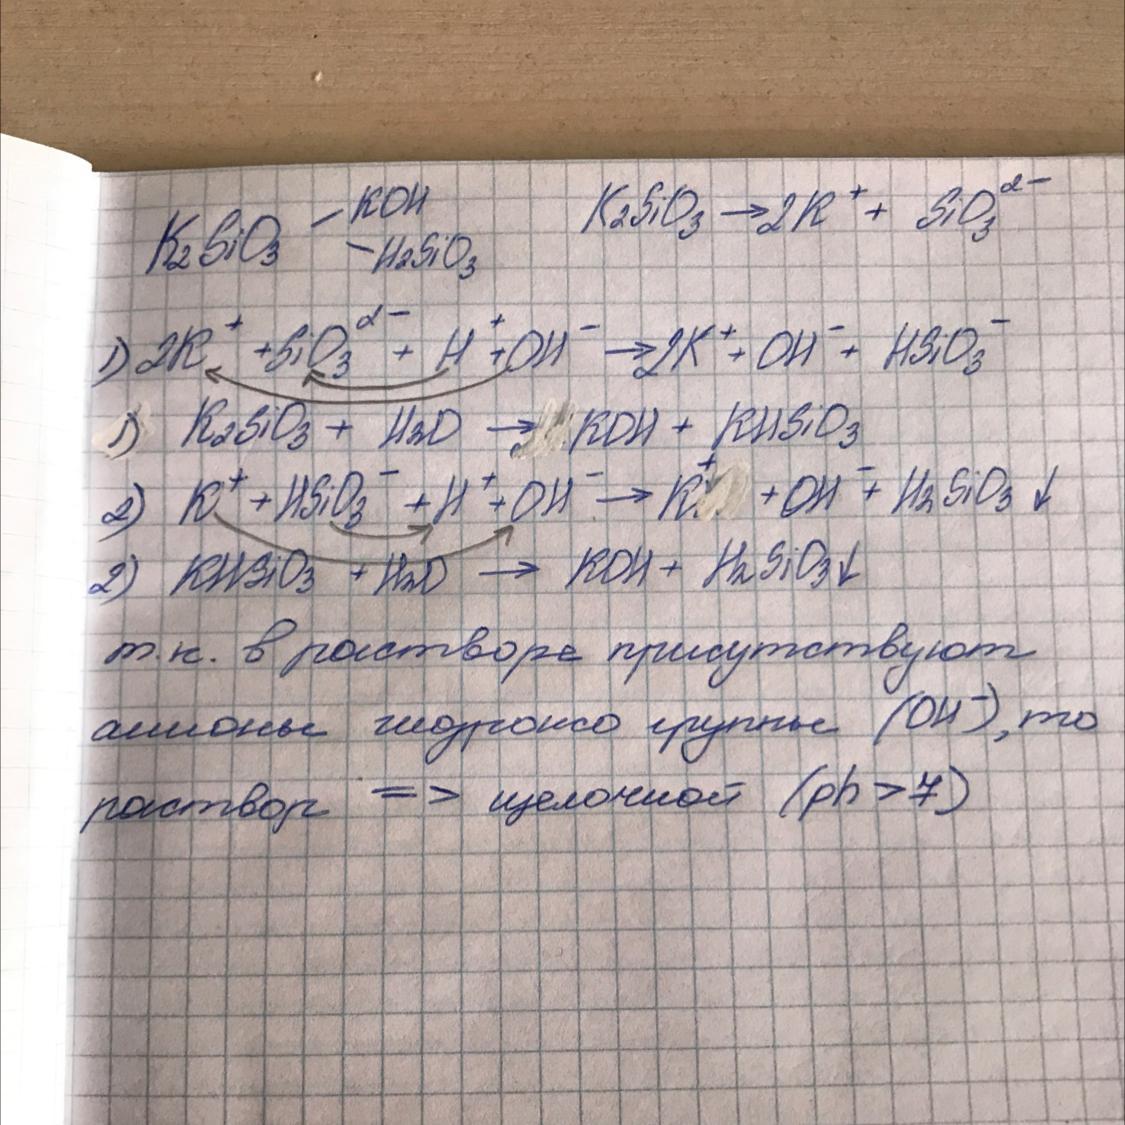 K₂SiO₃ – KOH
– H₂SiO₃
K₂SiO₃ → 2K⁺ + SiO₃²⁻
1) 2K⁺ + SiO₃²⁻ + H⁺ + OH⁻ → 2K⁺ + OH⁻ + HSiO₃⁻
1) K₂SiO₃ + H₂O → KOH + KHSiO₃
2) K⁺ + HSiO₃⁻ + H⁺ + OH⁻ → K⁺ + OH⁻ + H₂SiO₃ ↓
2) KHSiO₃ + H₂O → KOH + H₂SiO₃ ↓
т.к. в растворе присутствуют
анионы гидроксо группы (OH⁻), то
раствор => щелочной (ph > 7)